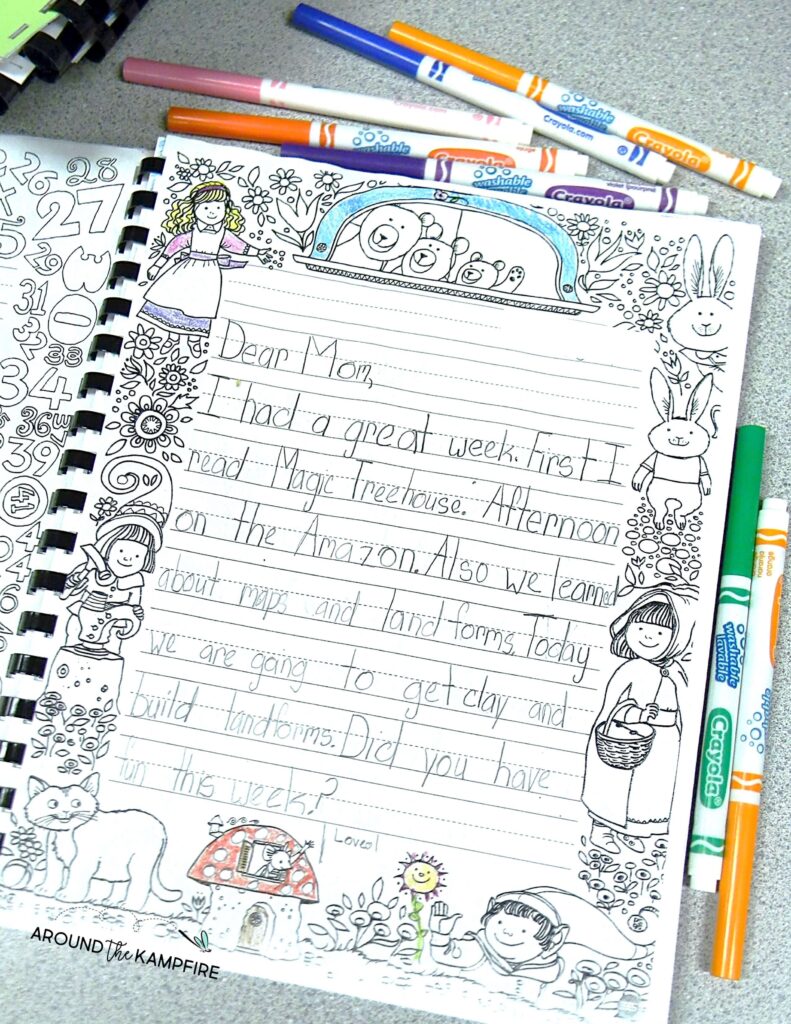 Dear Mom,
I had a great week. First I
read Magic Treehouse. Afternoon
on the Amazon. Also we learned
about maps and landforms. Today
we are gang to get clay and
build landforms. Did you have
fun this week?
Love
AROUND THE KAMPFIRE
26
28
27
31
33
34
36
39
41
Crayola.com
washable
Crayola
Crayola.com
washable
Crayola
washable
Crayola
violet (purpura)
washable
lavable
Crayola
orange
naranja
washable